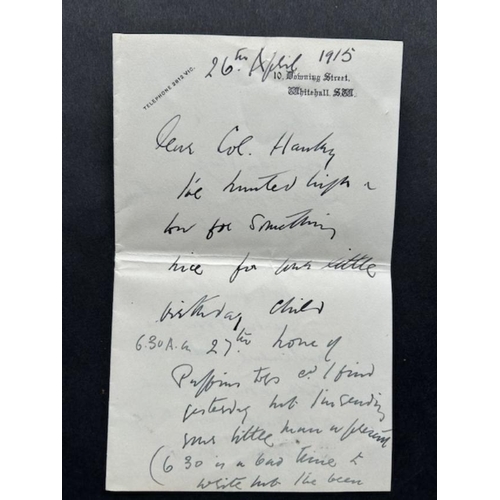 26th April 1915
TELEPHONE 2913 VIC.
10, Downing Street,
Whitehall, S.W.
Dear Col. Hankey
I've hunted high &
low for something
nice for your little
birthday child
6.30 A.M. 27th none of
Puffins toys cd. I find
yesterday but I'm sending
your little man a present
(6 30 is a bad time to
write but I've been